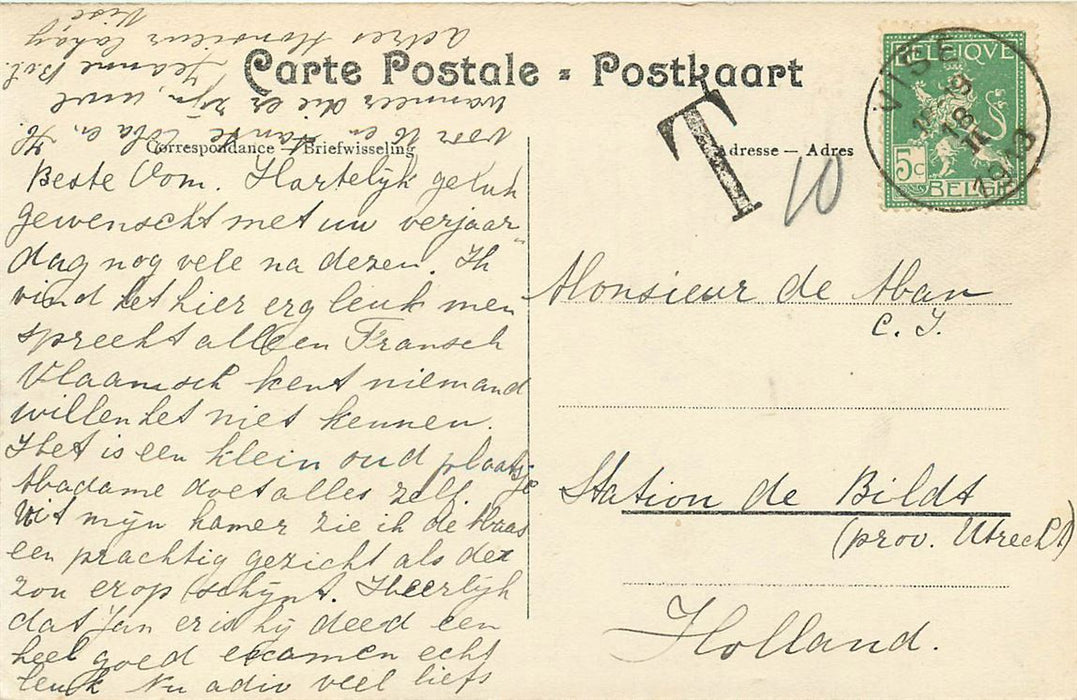 Carte Postale - Postkaart
Correspondance - Briefwisseling
Adresse - Adres
BELGIQUE
5c
BELGIE
VISÉ
18 19
1913
T
10
Beste Oom. Hartelijk geluk
gewenscht met uw verjaar"
dag nog vele na dezen. Ik
vind het hier erg leuk men
spreekt alleen Fransch
Vlaamsch kent niemand
willen het niet kennen.
Het is een klein oud plaatsje
Madame doet alles zelf.
Uit mijn kamer zie ik de Maas
een prachtig gezicht als de
zon erop schijnt. Heerlijk
dat Jan er is hij deed een
heel goed examen echt
leuk Nu adio veel liefs
voor U en Tante Coba en H.
wanneer die er zijn, uwe
Jeanne
adres Monsieur
Visé
Monsieur de Man
C. J.
Station de Bildt
(prov. Utrecht)
Holland.